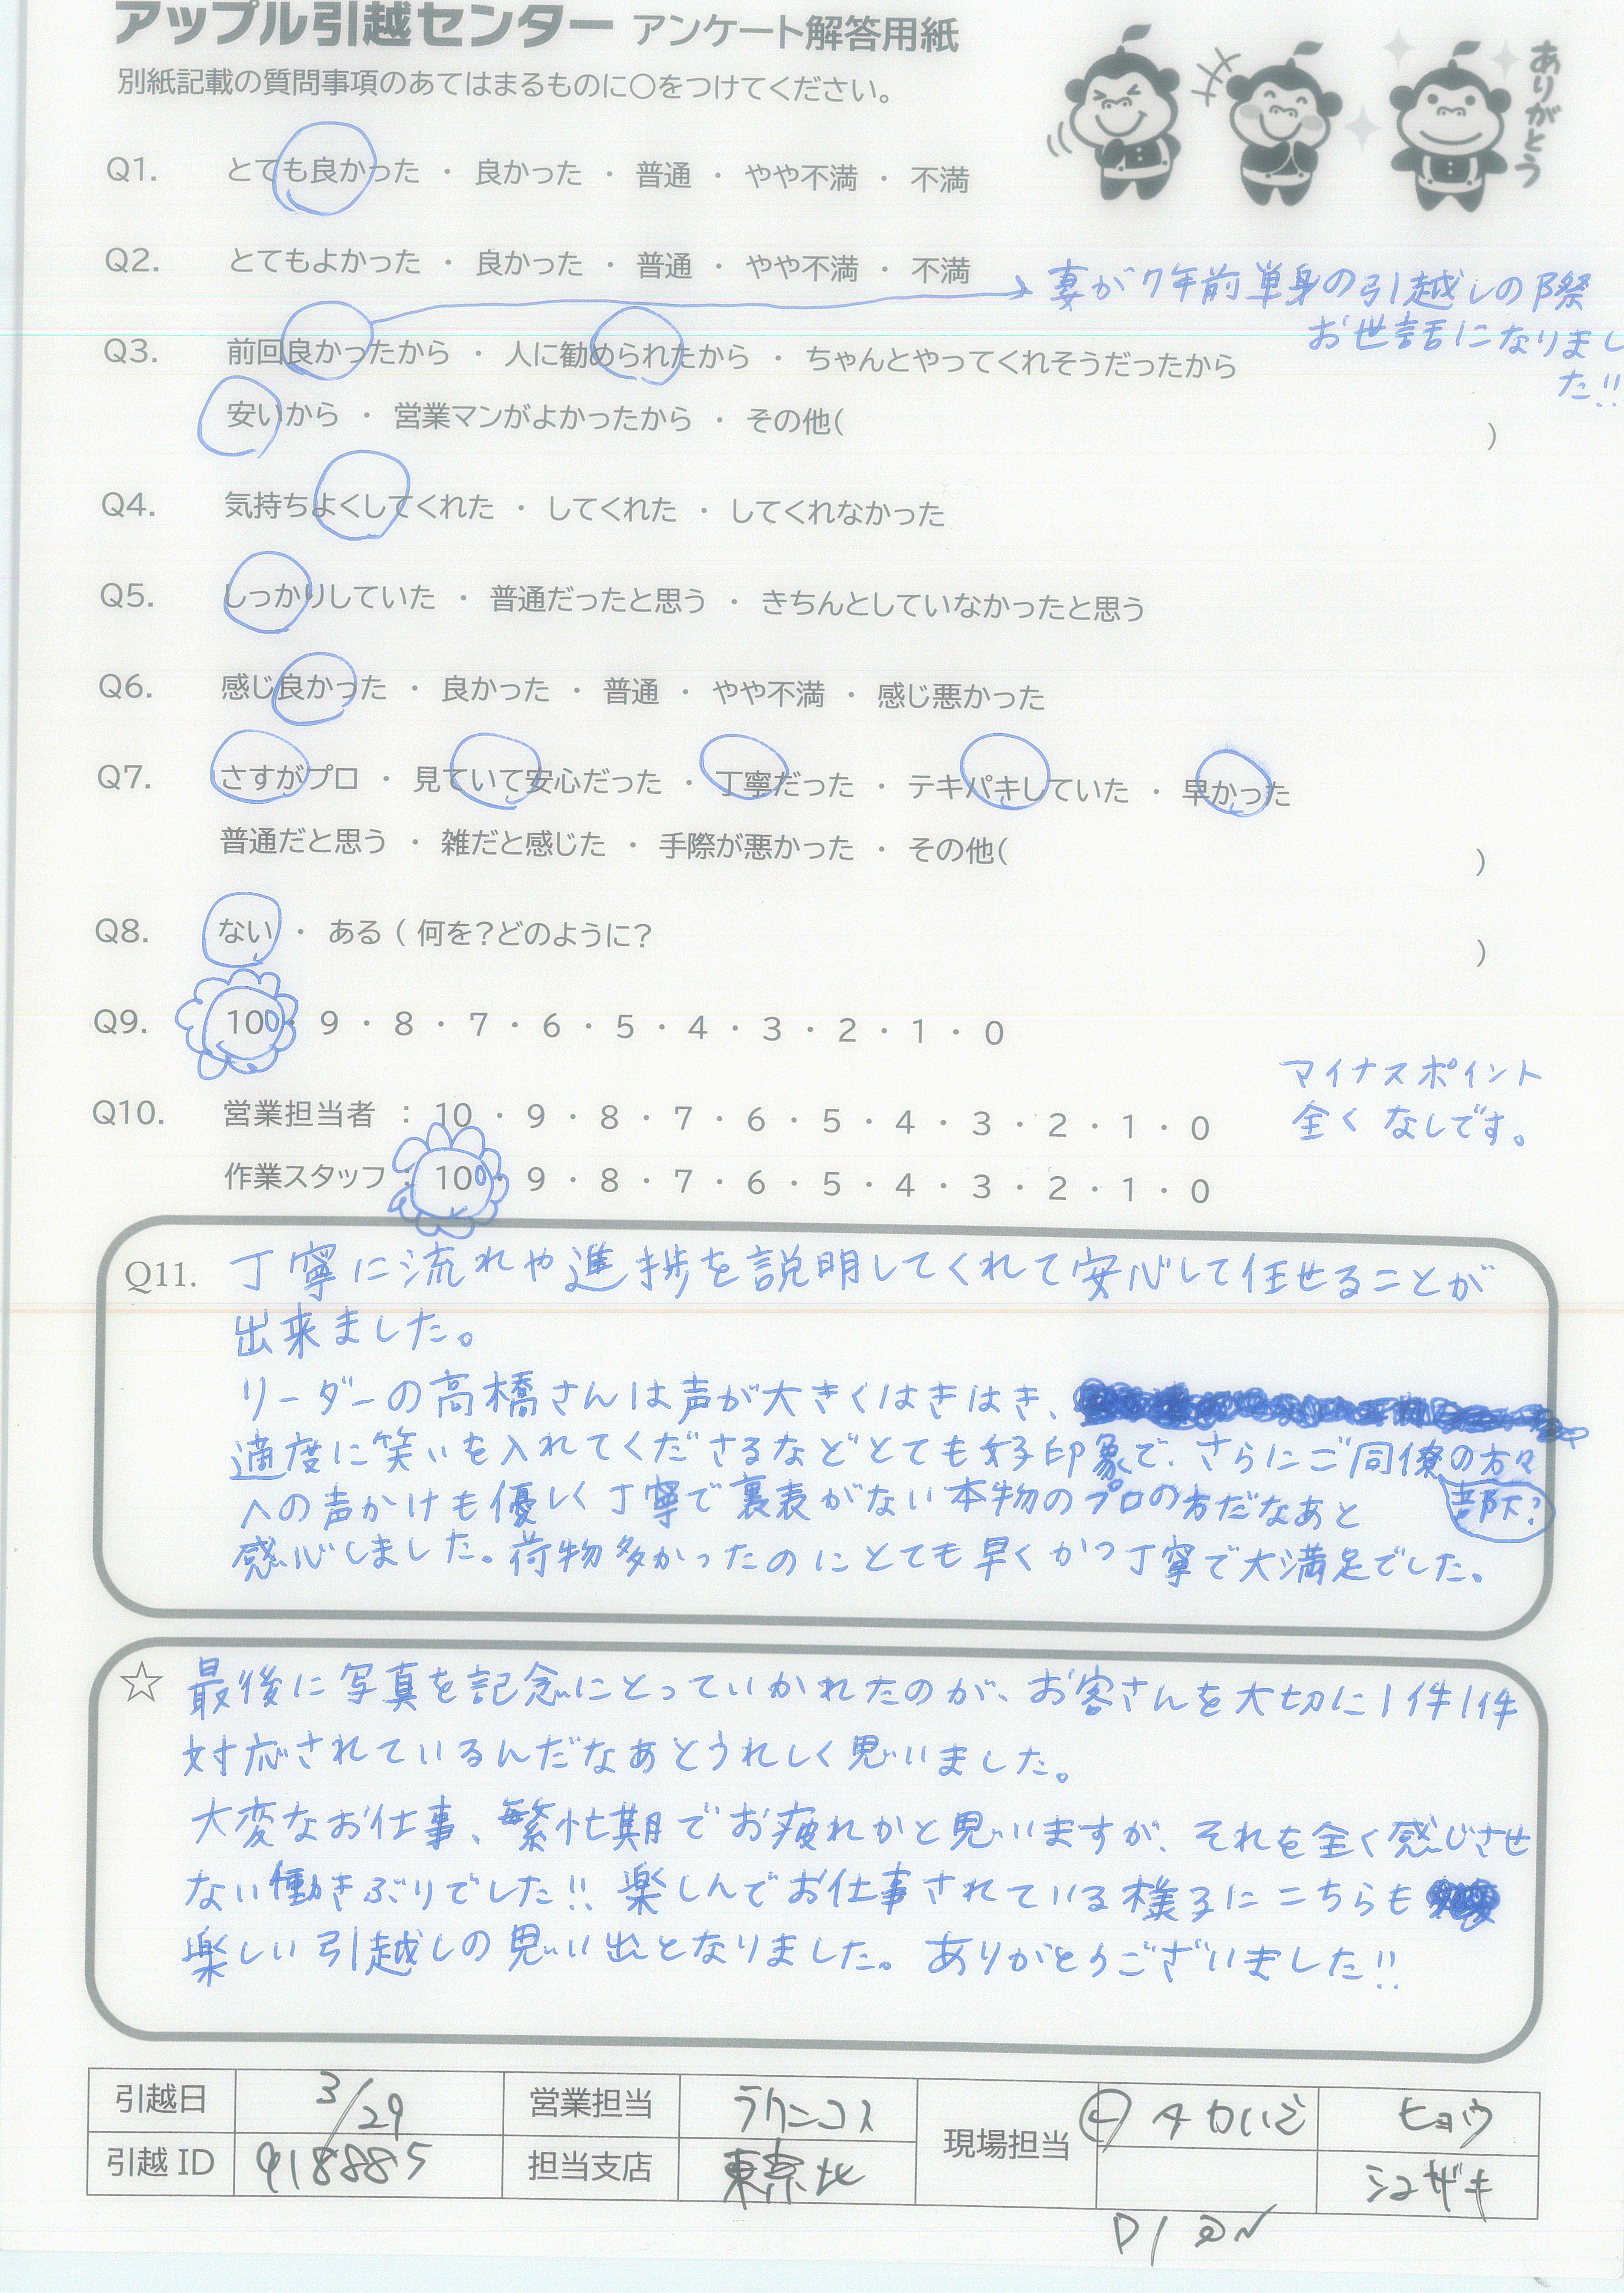 アップル引越センター アンケート解答用紙
別紙記載の質問事項のあてはまるものに〇をつけてください。
ありがとう
Q1. とても良かった ・ 良かった ・ 普通 ・ やや不満 ・ 不満
Q2. とてもよかった ・ 良かった ・ 普通 ・ やや不満 ・ 不満
→ 妻が7年前単身の引越しの際
お世話になりまし
た!!
Q3. 前回良かったから ・ 人に勧められたから ・ ちゃんとやってくれそうだったから
安いから ・ 営業マンがよかったから ・ その他( )
Q4. 気持ちよくしてくれた ・ してくれた ・ してくれなかった
Q5. しっかりしていた ・ 普通だったと思う ・ きちんとしていなかったと思う
Q6. 感じ良かった ・ 良かった ・ 普通 ・ やや不満 ・ 感じ悪かった
Q7. さすがプロ ・ 見ていて安心だった ・ 丁寧だった ・ テキパキしていた ・ 早かった
普通だと思う ・ 雑だと感じた ・ 手際が悪かった ・ その他( )
Q8. ない ・ ある ( 何を?どのように? )
Q9. 100・9・8・7・6・5・4・3・2・1・0
マイナスポイント
全くなしです。
Q10. 営業担当者 : 10・9・8・7・6・5・4・3・2・1・0
作業スタッフ : 100・9・8・7・6・5・4・3・2・1・0
Q11. 丁寧に流れや進捗を説明してくれて安心して任せることが
出来ました。
リーダーの高橋さんは声が大きくはきはき、
適度に笑いを入れてくださるなどとても好印象で、さらにご同僚の方々
部下?
への声かけも優しく丁寧で裏表がない本物のプロの方だなあと
感心しました。荷物多かったのにとても早くかつ丁寧で大満足でした。
☆ 最後に写真を記念にとっていかれたのが、お客さんを大切に1件1件
対応されているんだなあとうれしく思いました。
大変なお仕事、繁忙期でお疲れかと思いますが、それを全く感じさせ
ない働きぶりでした!! 楽しんでお仕事されている様子にこちらも
楽しい引越しの思い出となりました。ありがとうございました!!
引越日 3/29 営業担当 ラクニコス 現場担当 ヒョウ
引越 ID 918885 担当支店 東京北